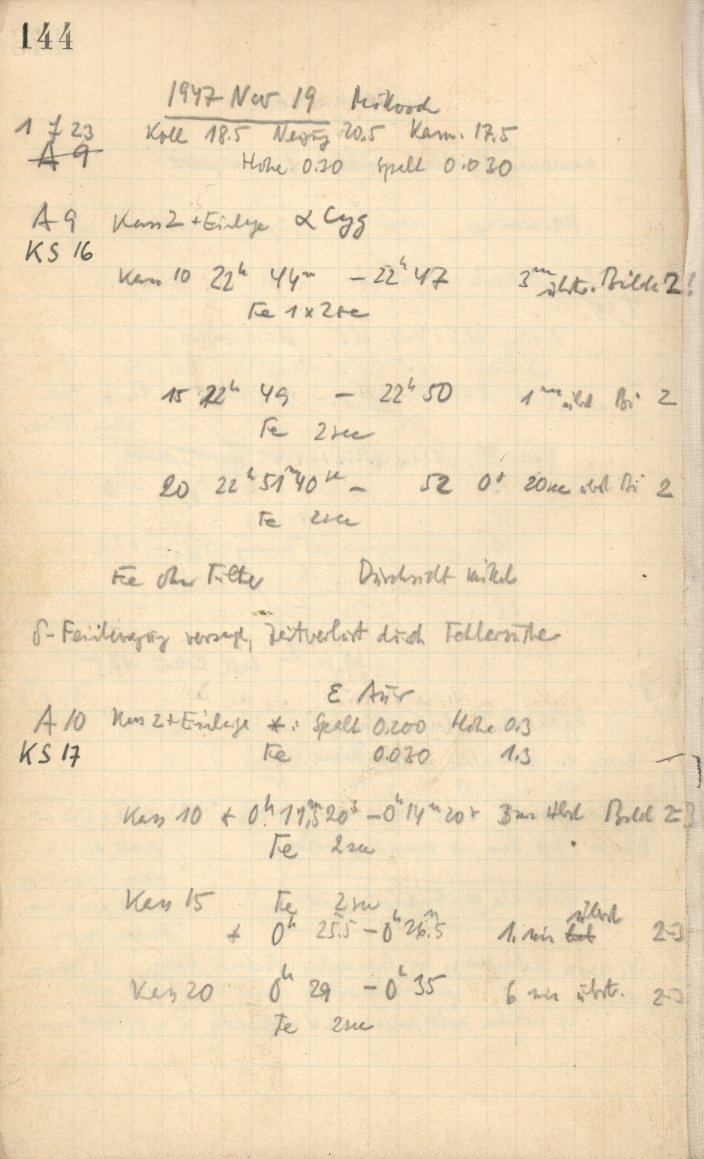 144
1947 Nov 19 Mittwoch
1 f 23 Koll 18.5 Neigung 20.5 Kam. 17.5
A 9 Höhe 0.30 Spalt 0.030
A 9 Kass 2 + Einlage α Cyg
KS 16
Kass 10 22h 44m – 22h 47 3m Bilder 2!
Fe 1 x 2sec
15 22h 49 – 22h 50 1m Bi 2
Fe 2sec
20 22h 51m 40sec – 52 0s 20sec Bi 2
Fe 2sec
Fe ohne Filter Durchsicht mittel
δ-Feinbewegung versagt, Zeitverlust durch Fehlersuche
ε Aur
A 10 Kass 2 + Einlage *: Spalt 0.200 Höhe 0.3
KS 17 Fe 0.030 1.3
Kass 10 * 0h 11m,5 20s – 0h 14m 20s 3 min Bild 2-3
Fe 2sec
Kass 15 Fe 2sec
* 0h 25.5 – 0h 26m.5 1. min 2-3
Kass 20 0h 29 – 0h 35 6 min 2-3
Fe 2sec